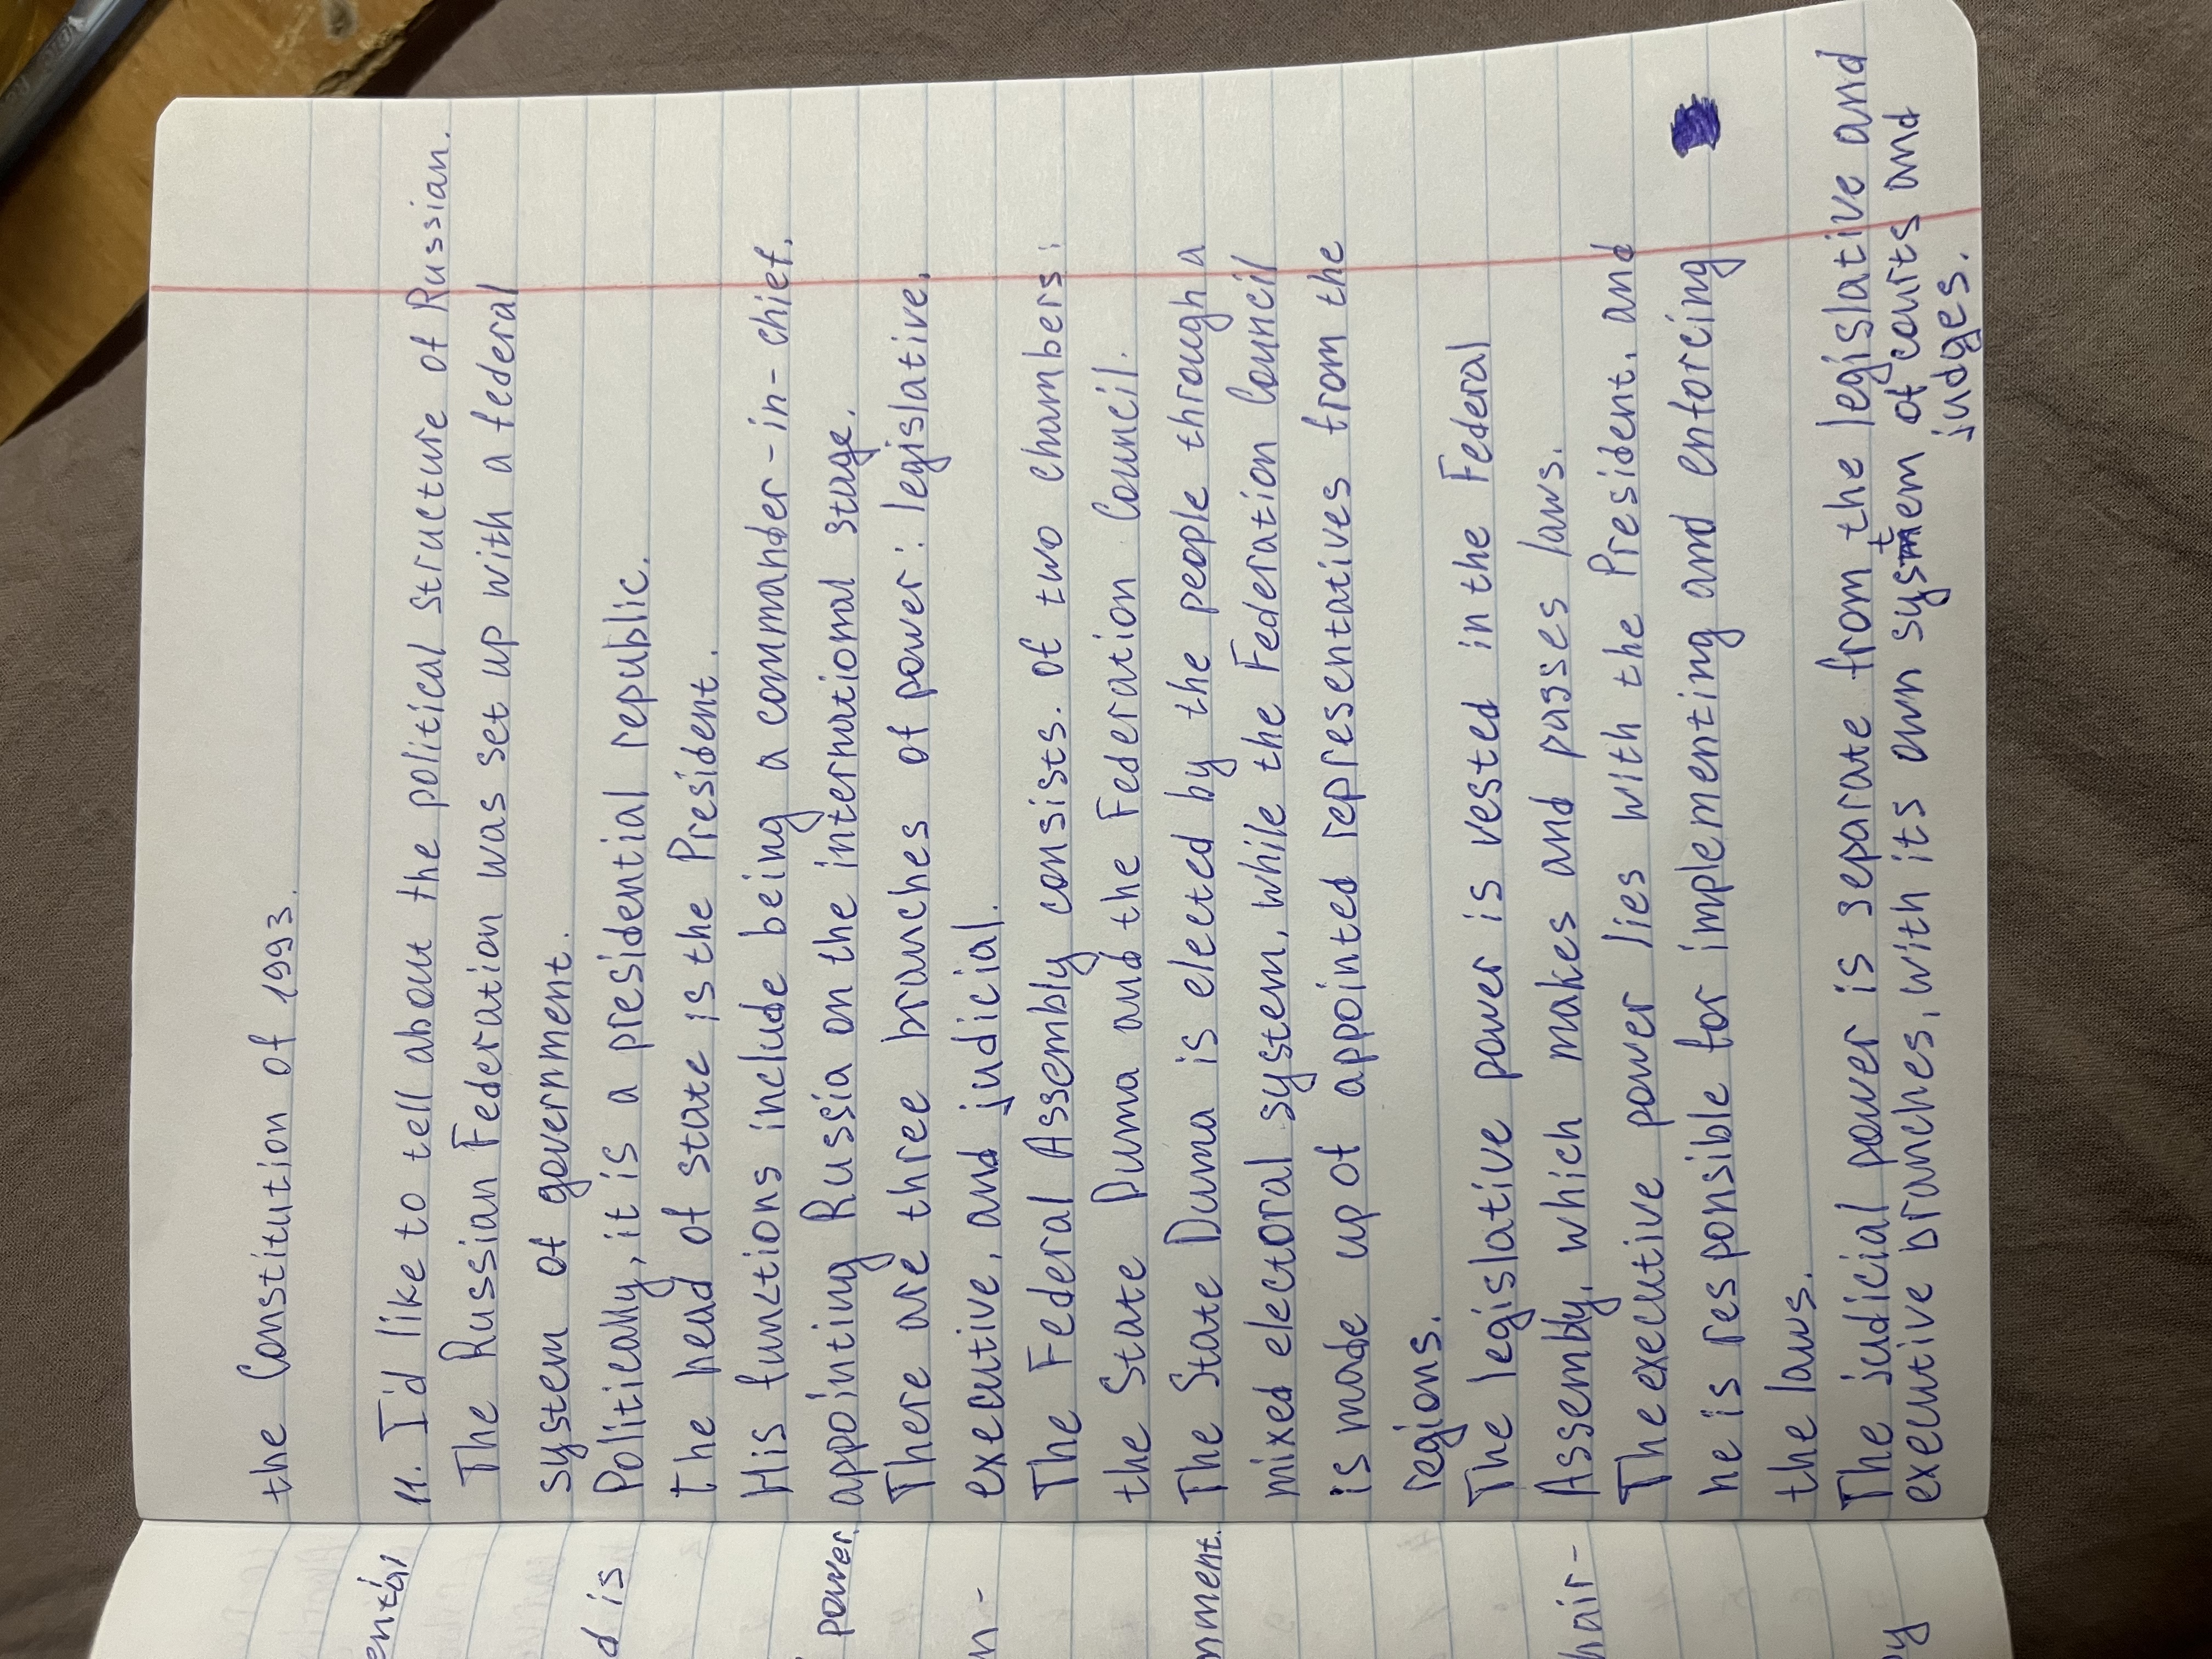 the Constitution of 1993.
11. I'd like to tell about the political structure of Russian.
The Russian Federation was set up with a federal
system of government.
Politically, it is a presidential republic.
The head of state is the President.
His functions include being a commander-in-chief,
appointing Russia on the international stage.
There are three branches of power: legislative,
executive, and judicial.
The Federal Assembly consists. of two chambers:
the State Duma and the Federation Council.
The State Duma is elected by the people through a
mixed electoral system, while the Federation Council
is made up of appointed representatives from the
regions.
The legislative power is vested in the Federal
Assembly, which makes and passes laws.
The executive power lies with the President, and
he is responsible for implementing and enforcing
the laws.
The judicial power is separate from the legislative and
executive branches, with its own system of courts and
judges.
ential
d is
power.
n-
nment.
hair-